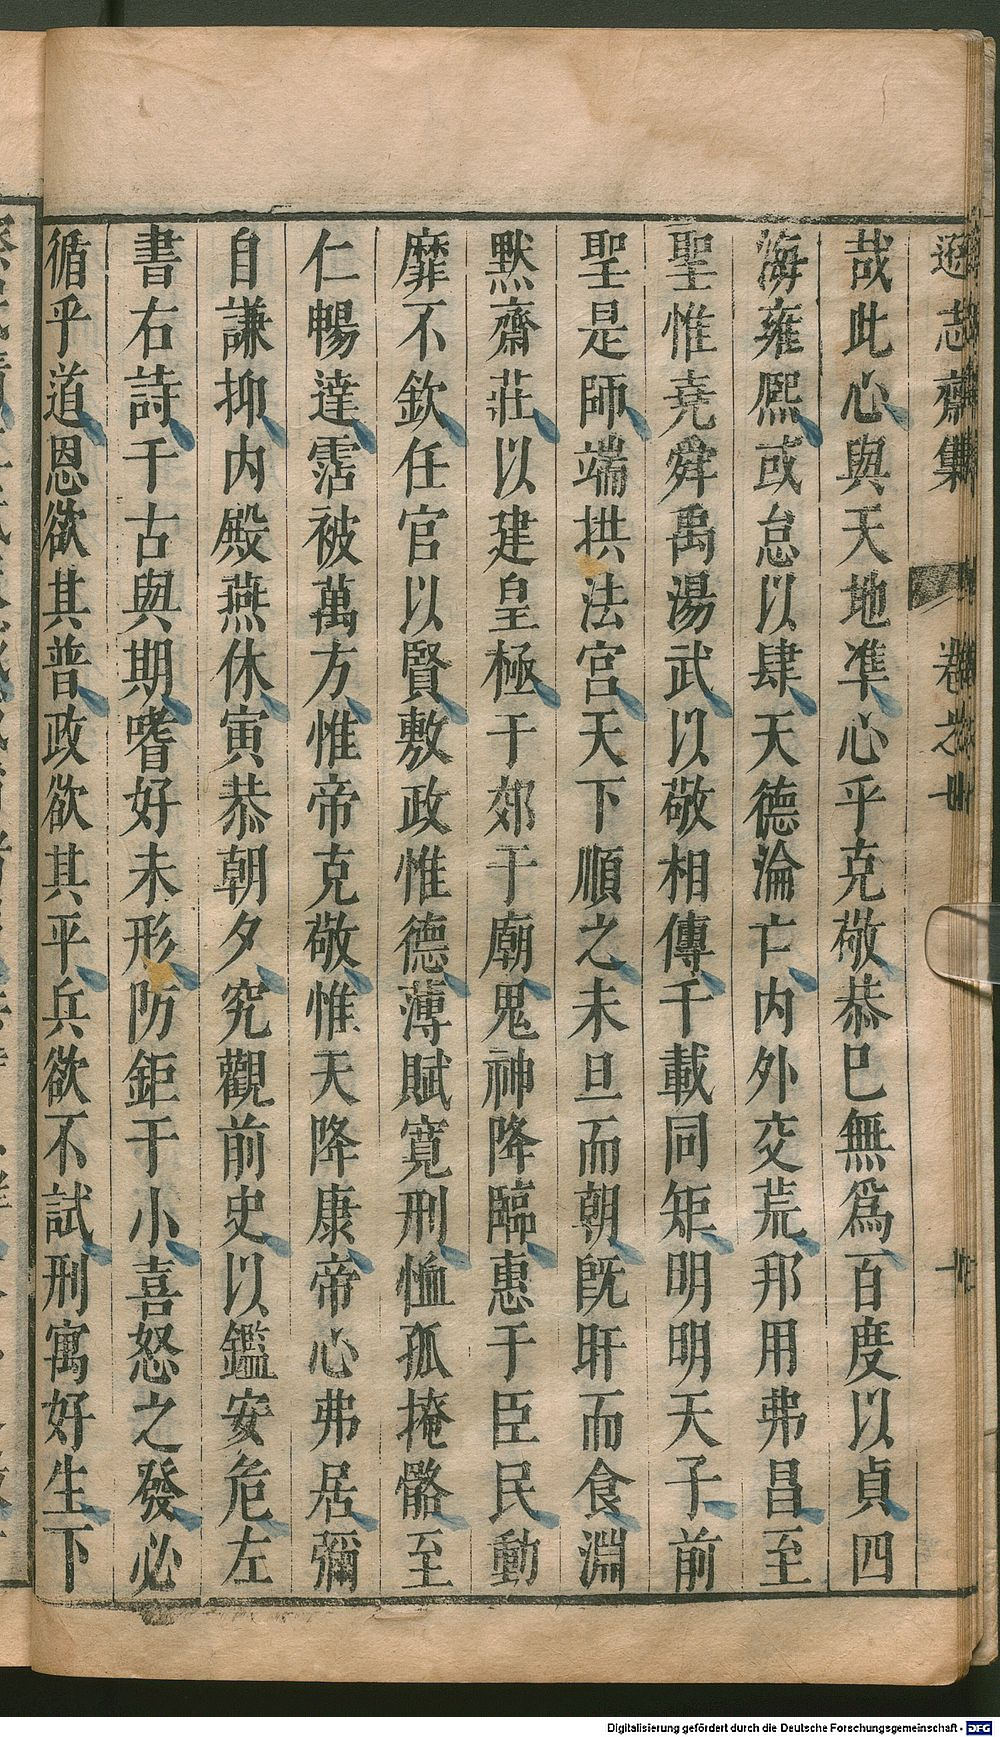 遜志齋集 卷之
哉此心與天地準心乎克敬恭巳無爲百度以貞四
海雍熈或怠以肆天德淪亡内外交荒邦用弗昌至
聖惟堯舜禹湯武以敬相傳千載同矩明明天子前
聖是師端拱法宫天下順之未旦而朝旣旰而食淵
默齋莊以建皇極于郊于廟鬼神降臨惠于臣民動
靡不欽任官以賢敷政惟德薄賦寛刑恤孤掩骼至
仁暢達霑被萬方惟帝克敬惟天降康帝心弗居彌
自謙抑内殿燕休寅恭朝夕究觀前史以鑑安危左
書右詩千古與期嗜好未形防鉅于小喜怒之發必
循乎道恩欲其普政欲其平兵欲不試刑寓好生下
Digitalisierung gefördert durch die Deutsche Forschungsgemeinschaft - DFG